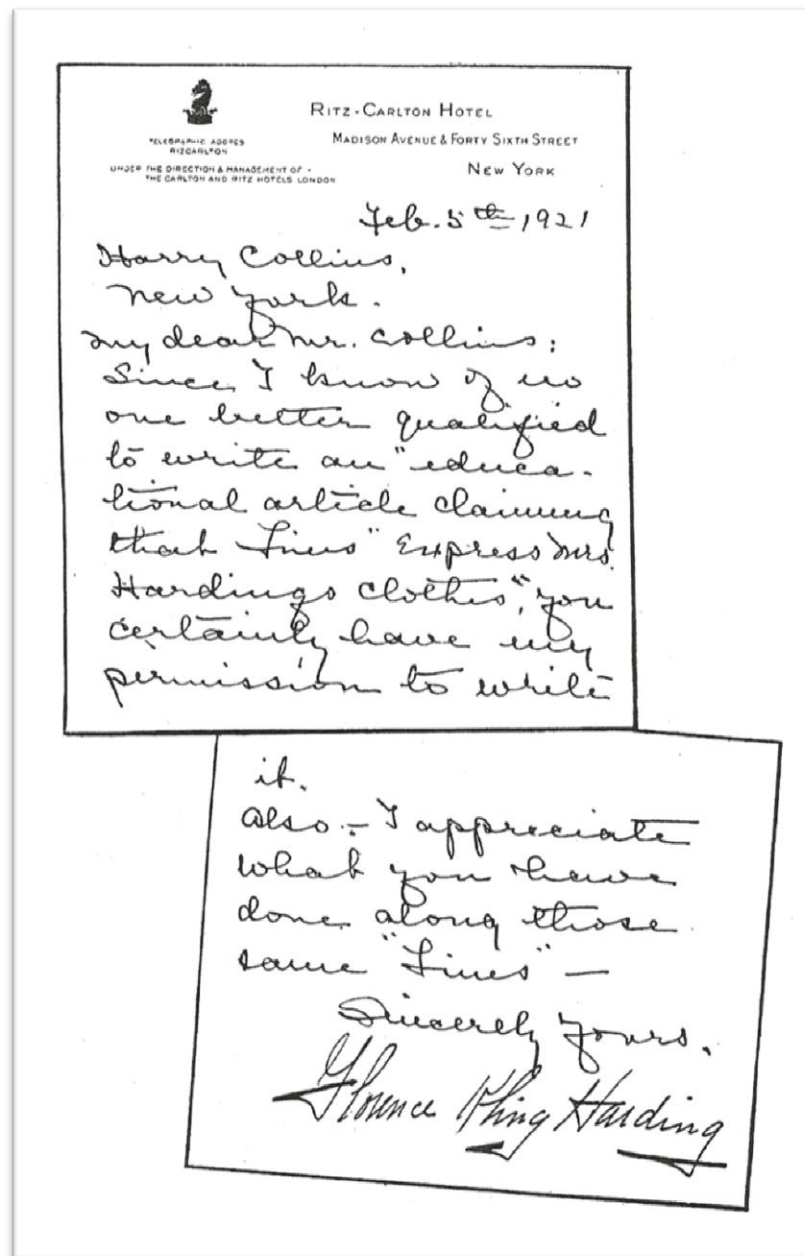 RITZ-CARLTON HOTEL
MADISON AVENUE & FORTY SIXTH STREET
NEW YORK
TELEGRAPHIC ADDRES
RIZCARLTON
UNDER THE DIRECTION & MANAGEMENT OF
THE CARLTON AND RITZ HOTELS LONDON
Feb. 5th 1921
Harry Collins,
New York.
My dear Mr. Collins:
Since I know of no
one better qualified
to write an "educa-
tional article claiming
that Lines" Express Mrs.
Hardings clothes", you
certainly have my
permission to write
it.
Also - I appreciate
what you have
done along those
same "Lines" —
Sincerely Yours.
Florence Kling Harding